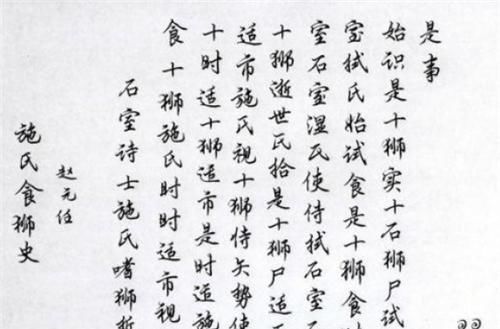 施氏食狮史
赵元任
石室诗士施氏嗜狮
食十狮施氏时时适市视
十时适十狮适市是时适施
适市施氏视十狮恃矢势使
十狮逝世氏拾是十狮尸适
室石室湿氏使侍拭石室
室拭氏始试食是十狮食
始识是十狮实十石狮尸试
是事